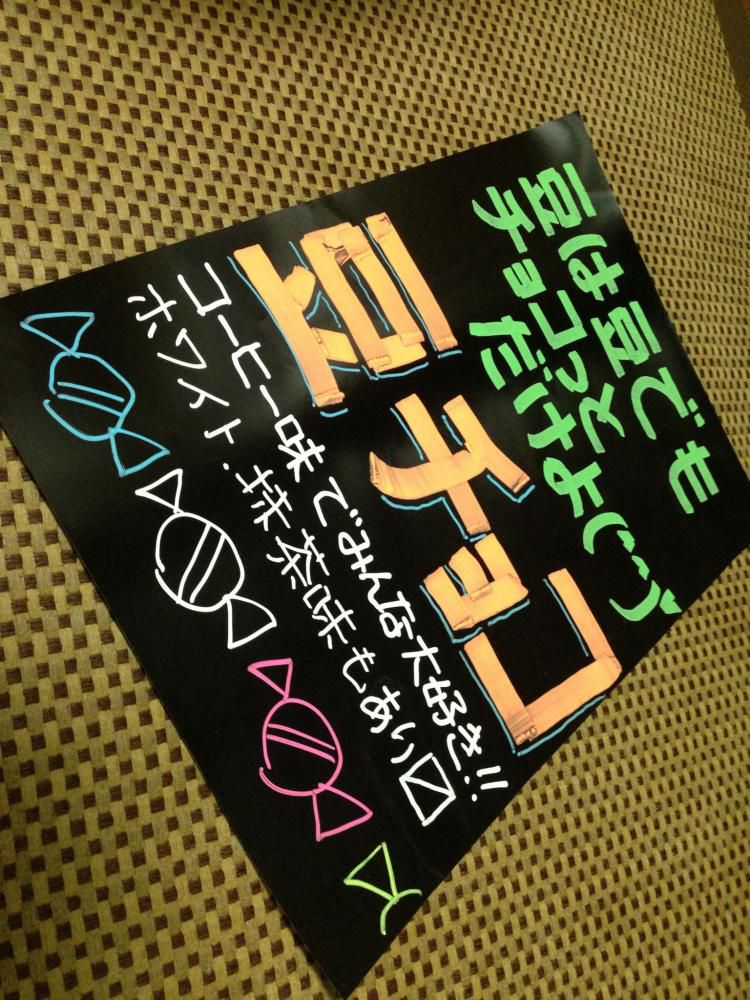 豆は豆でも
チョコっとだけよ(^^)
豆チョコ
コーヒー味でみんな大好き!!
ホワイト・抹茶味もあり〼